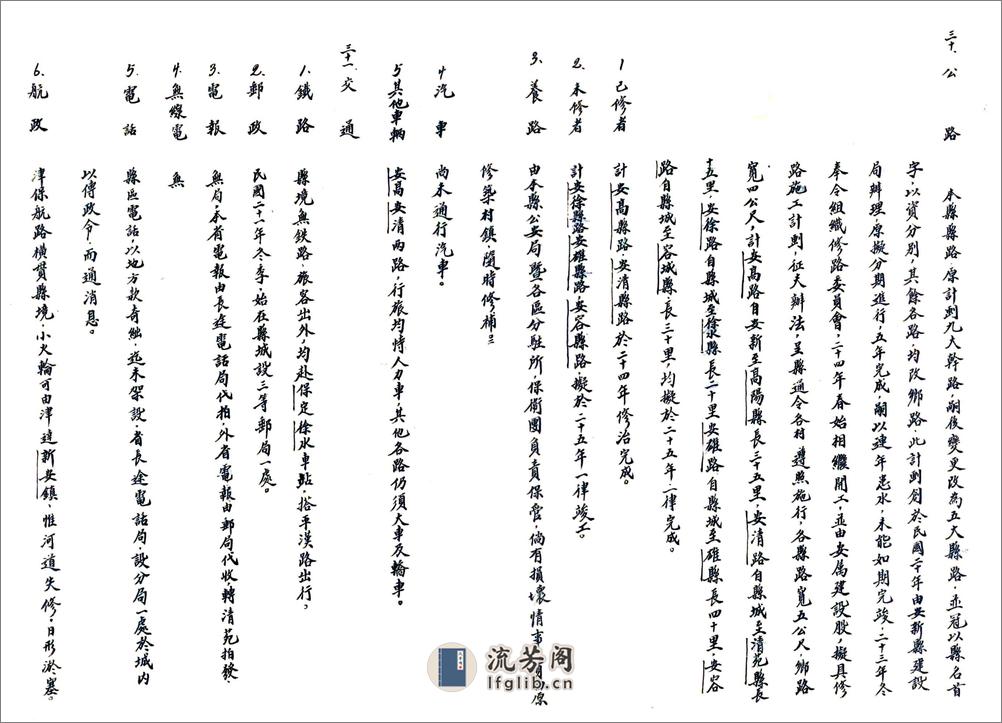 三十、公路 本縣縣路原計劃九大幹路，嗣後變更改為五大縣路，並冠以縣名首
字，以資分別，其餘各路，均改鄉路，此計劃創於民國二十年由安新縣建設
局辦理，原擬分期進行，五年完成，嗣以連年患水，未能如期完竣，二十三年冬
奉令組織修路委員會，二十四年春始相繼開工，並由安屬建設股，擬具修
路施工計劃，征夫辦法，呈縣通令各村遵照施行，各縣路寬五公尺，鄉路
寬四公尺，計安高路自安新至高陽縣長三十五里，安清路自縣城至清苑縣長
十五里，安徐路自縣城至徐水縣長二十里，安雄路自縣城至雄縣長四十里，安容
路自縣城至容城縣長三十里，均擬於二十五年一律完成。
1 已修者 計安高縣路安清縣路於二十四年修治完成。
2、未修者 計安徐縣路安雄縣路安容縣路，擬於二十五年一律竣工。
3、養路 由本縣公安局暨各區分駐所，保衛團負責保管，倘有損壞情事，由原
修築村鎮，隨時修補
4 汽車 尚未通行汽車。
5 其他車輛 安高安清兩路，行旅均恃人力車，其他各路仍須大車及輪車。
三十一、交通
1、鐵路 縣境無鉄路，旅客出外，均赴保定徐水車站，搭平漢路出行，
2、郵政 民國二十一年冬季，始在縣城設三等郵局一處。
3、電報 無局，本省電報由長途電話局代拍，外省電報由郵局代收，轉清苑拍發，
4、無線電 無
5、電話 縣區電話，以地方款奇絀，迄未架設，省長途電話局，設分局一處於城內
以傳政令，而通消息。
6、航政 津保航路橫貫縣境，小火輪可由津達新安鎮，惟河道失修，日形淤塞。
流芳阁
lfglib.cn